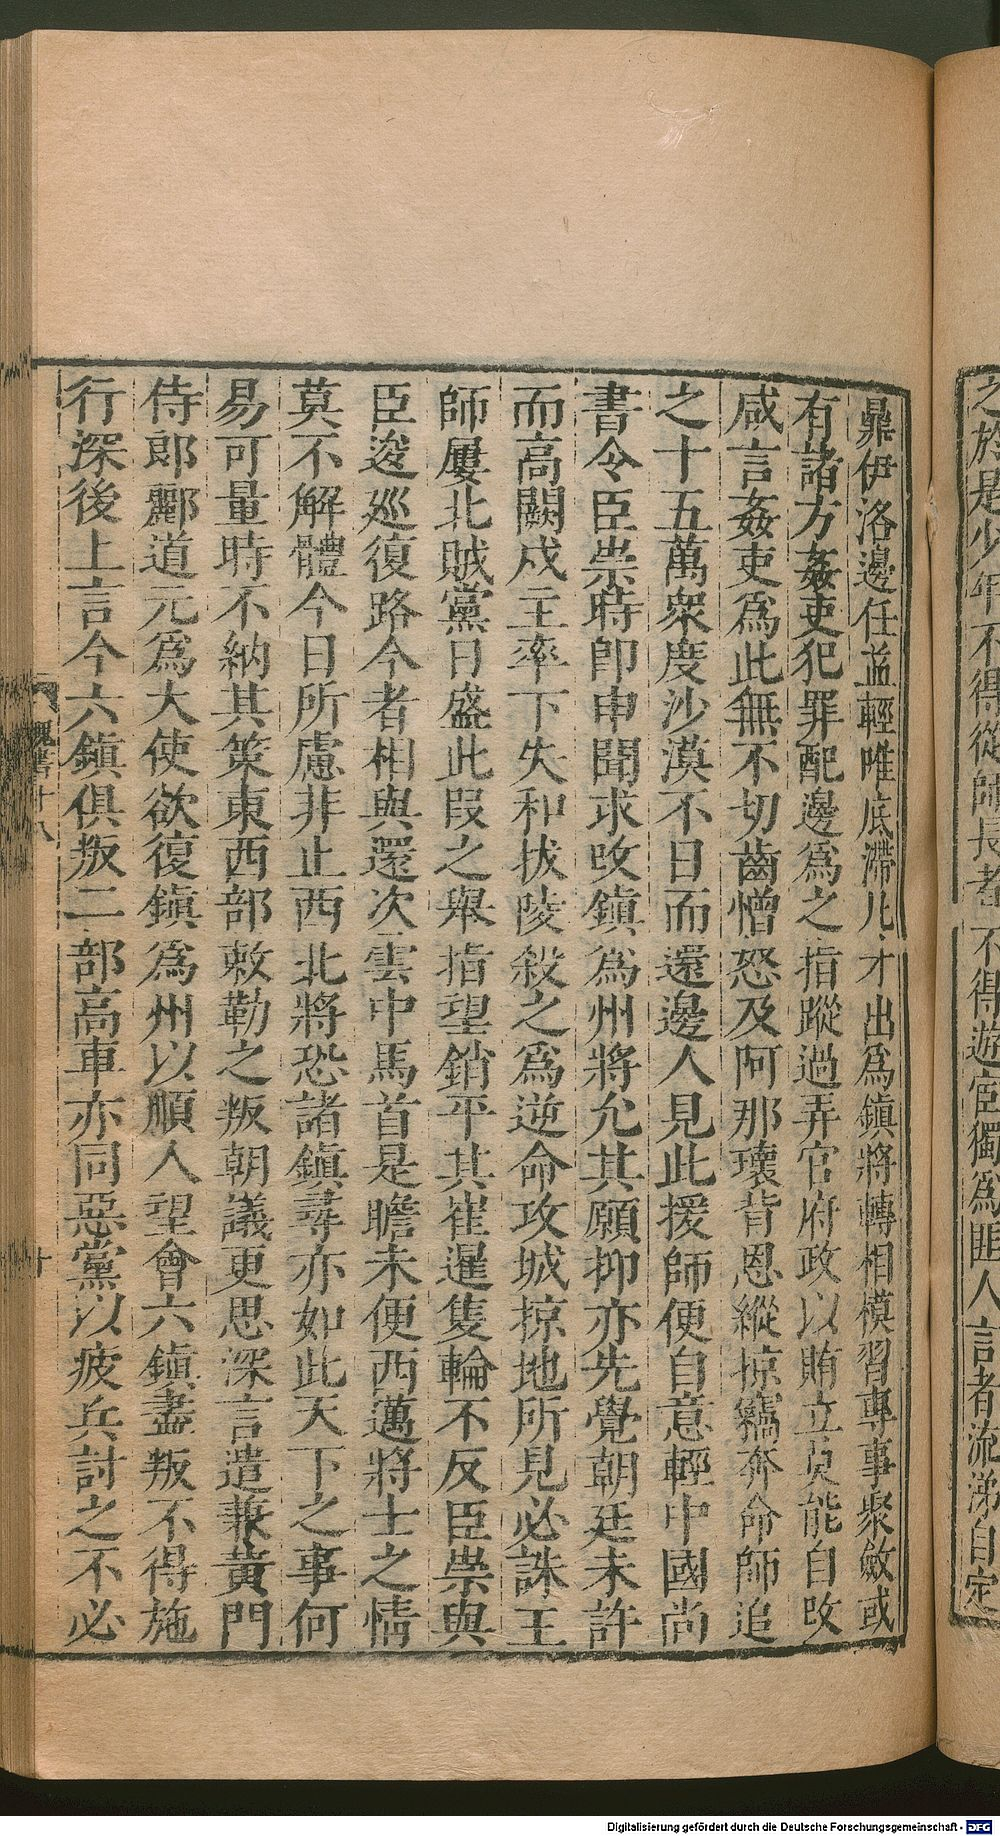 之於是少年不得從師長者不得遊宦獨爲匪人言者流涕自定
鼎伊洛邊任益輕唯底滯凡才出爲鎭將轉相模習專事聚斂或
有諸方姦吏犯罪配邊爲之指蹤過弄官府政以賄立莫能自改
咸言姦吏爲此無不切齒憎怒及阿那瓌背恩縱掠竊奔命師追
之十五萬衆度沙漠不日而還邊人見此援師便自意輕中國尚
書令臣崇時卽申聞求改鎭爲州將允其願抑亦先覺朝廷未許
而高闕戍主率下失和拔陵殺之爲逆命攻城掠地所見必誅王
師屢北賊黨日盛此叚之舉指望銷平其崔暹隻輪不反臣崇與
臣逡廵復路今者相與還次雲中馬首是瞻未便西邁將士之情
莫不解體今日所慮非止西北將恐諸鎭尋亦如此天下之事何
易可量時不納其策東西部敕勒之叛朝議更思深言遣兼黃門
侍郎酈道元爲大使欲復鎭爲州以順人望會六鎭盡叛不得施
行深後上言今六鎭俱叛二部高車亦同惡黨以疲兵討之不必
魏書十八
十
Digitalisierung gefördert durch die Deutsche Forschungsgemeinschaft - DFG